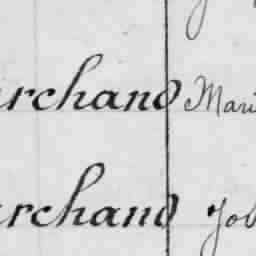 archand Mari
archand Joh